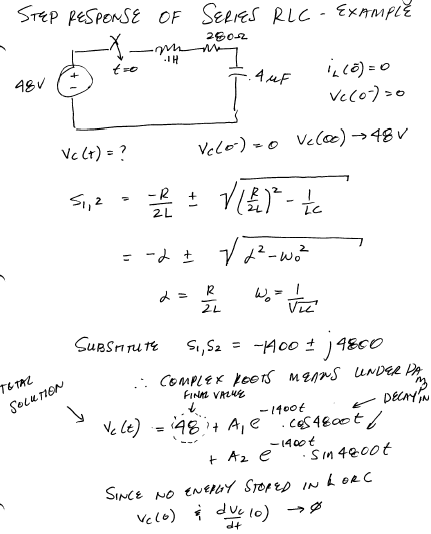 STEP RESPONSE OF SERIES RLC - EXAMPLE
280Ω
.1H
t=0
48V
+
-
.4 μF
i_L(0⁻)=0
V_C(0⁻)=0
V_C(t) = ?
V_C(0⁻) = 0  V_C(∞) → 48 V
S₁,₂ = -R/2L ± √((R/2L)² - 1/LC)
= -α ± √(α² - ω₀²)
α = R/2L  ω₀ = 1/√LC
SUBSTITUTE S₁,S₂ = -1400 ± j4800
∴ COMPLEX ROOTS MEANS UNDERDAMP
TOTAL SOLUTION
FINAL VALUE
DECAYIN
V_C(t) = 48 + A₁ e^-1400t · cos4800t
+ A₂ e^-1400t · sin4800t
SINCE NO ENERGY STORED IN L OR C
V_C(0) & dV_C/dt (0) → ∅